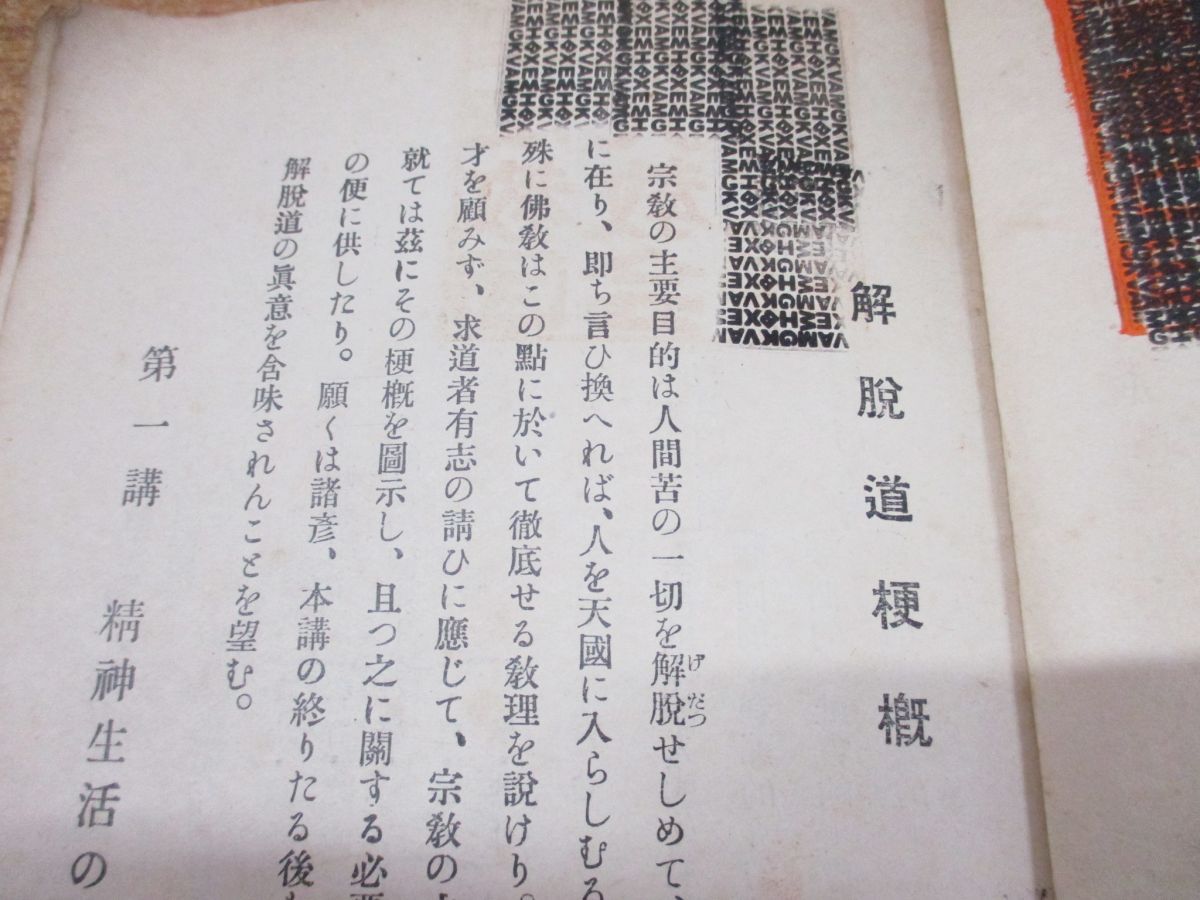 解脫道梗槪
宗敎の主要目的は人間苦の一切を解脫せしめて、
げだつ
に在り、卽ち言ひ換へれば、人を天國に入らしむる
殊に佛敎はこの點に於いて徹底せる敎理を說けり。
才を顧みず、求道者有志の請ひに應じて、宗敎の
就ては茲にその梗槪を圖示し、且つ之に關する必要
の便に供したり。願くは諸彥、本講の終りたる後
解脫道の眞意を含味されんことを望む。
第一講　精神生活の